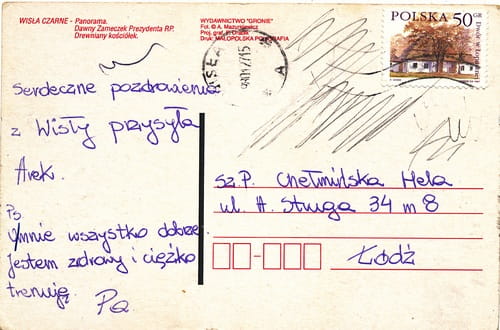 WISŁA CZARNE - Panorama.
Dawny Zameczek Prezydenta R.P.
Drewniany kościółek.
WYDAWNICTWO "GRONIE"
Fot. © A. Mazurkiewicz
Druk: MAŁOPOLSKA POLIGRAFIA
POLSKA 50 GR
Serdeczne pozdrowienia
z Wisły przysyła
Arek.
Ps
U mnie wszystko dobrze.
Jestem zdrowy i ciężko
trenuję. Pa
Sz.P. Chełmińska Hela
ul. A. Struga 34 m 8
Łódź